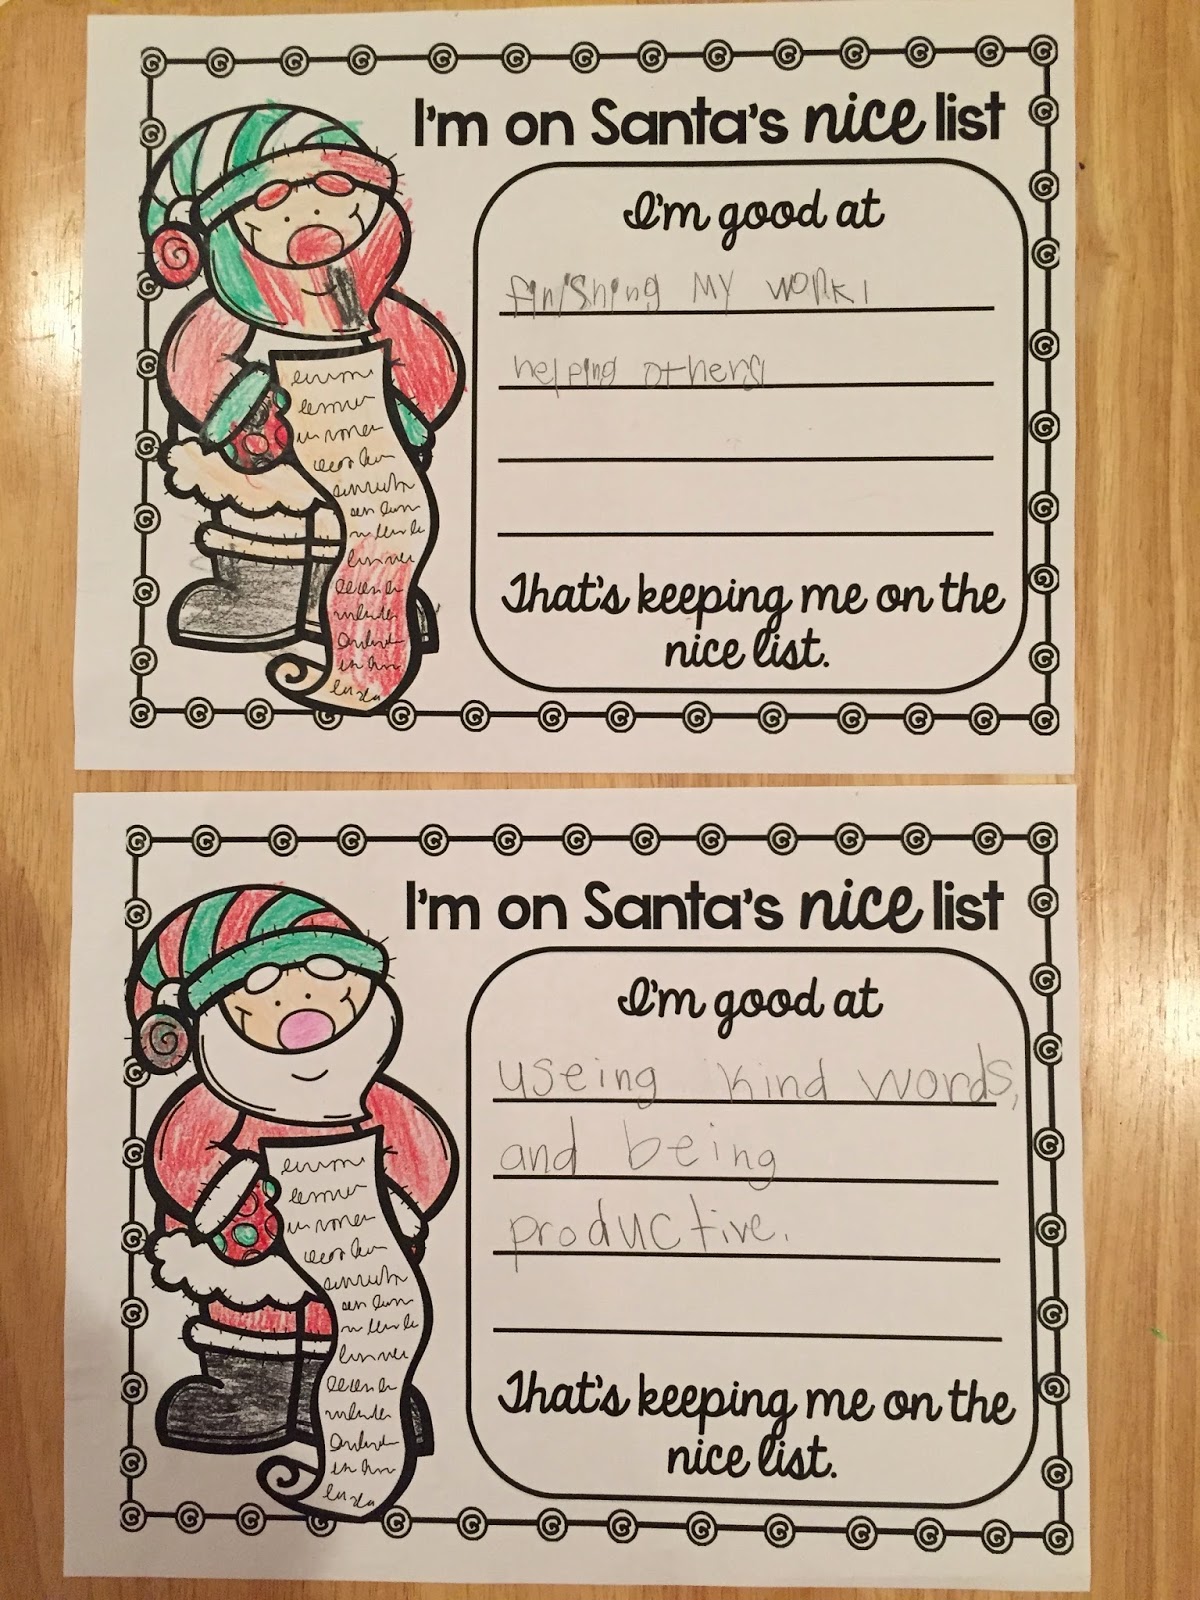 I'm on Santa's nice list
I'm good at
finishing my work,
helping others,
That's keeping me on the
nice list.
I'm on Santa's nice list
I'm good at
useing kind words,
and being
productive.
That's keeping me on the
nice list.